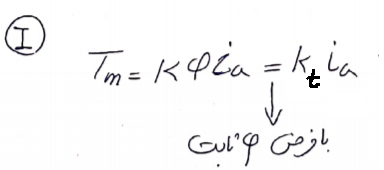 I
Tm = K φ ia = kt ia
↓
با فرض φ ثابت